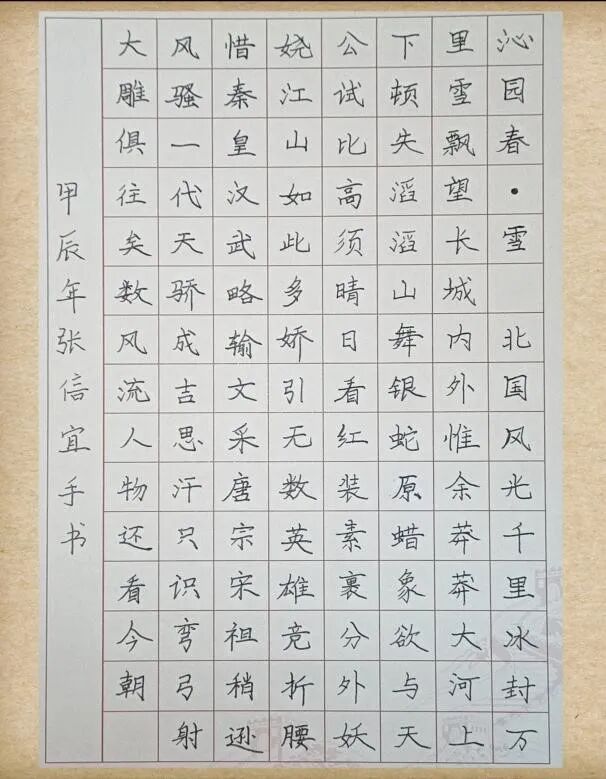 沁园春·雪 北国风光千里冰封万
里雪飘望长城内外惟余莽莽大河上
下顿失滔滔山舞银蛇原蜡象欲与天
公试比高须晴日看红装素裹分外妖
娆江山如此多娇引无数英雄竞折腰
惜秦皇汉武略输文采唐宗宋祖稍逊
风骚一代天骄成吉思汗只识弯弓射
大雕俱往矣数风流人物还看今朝
甲辰年张信宜手书